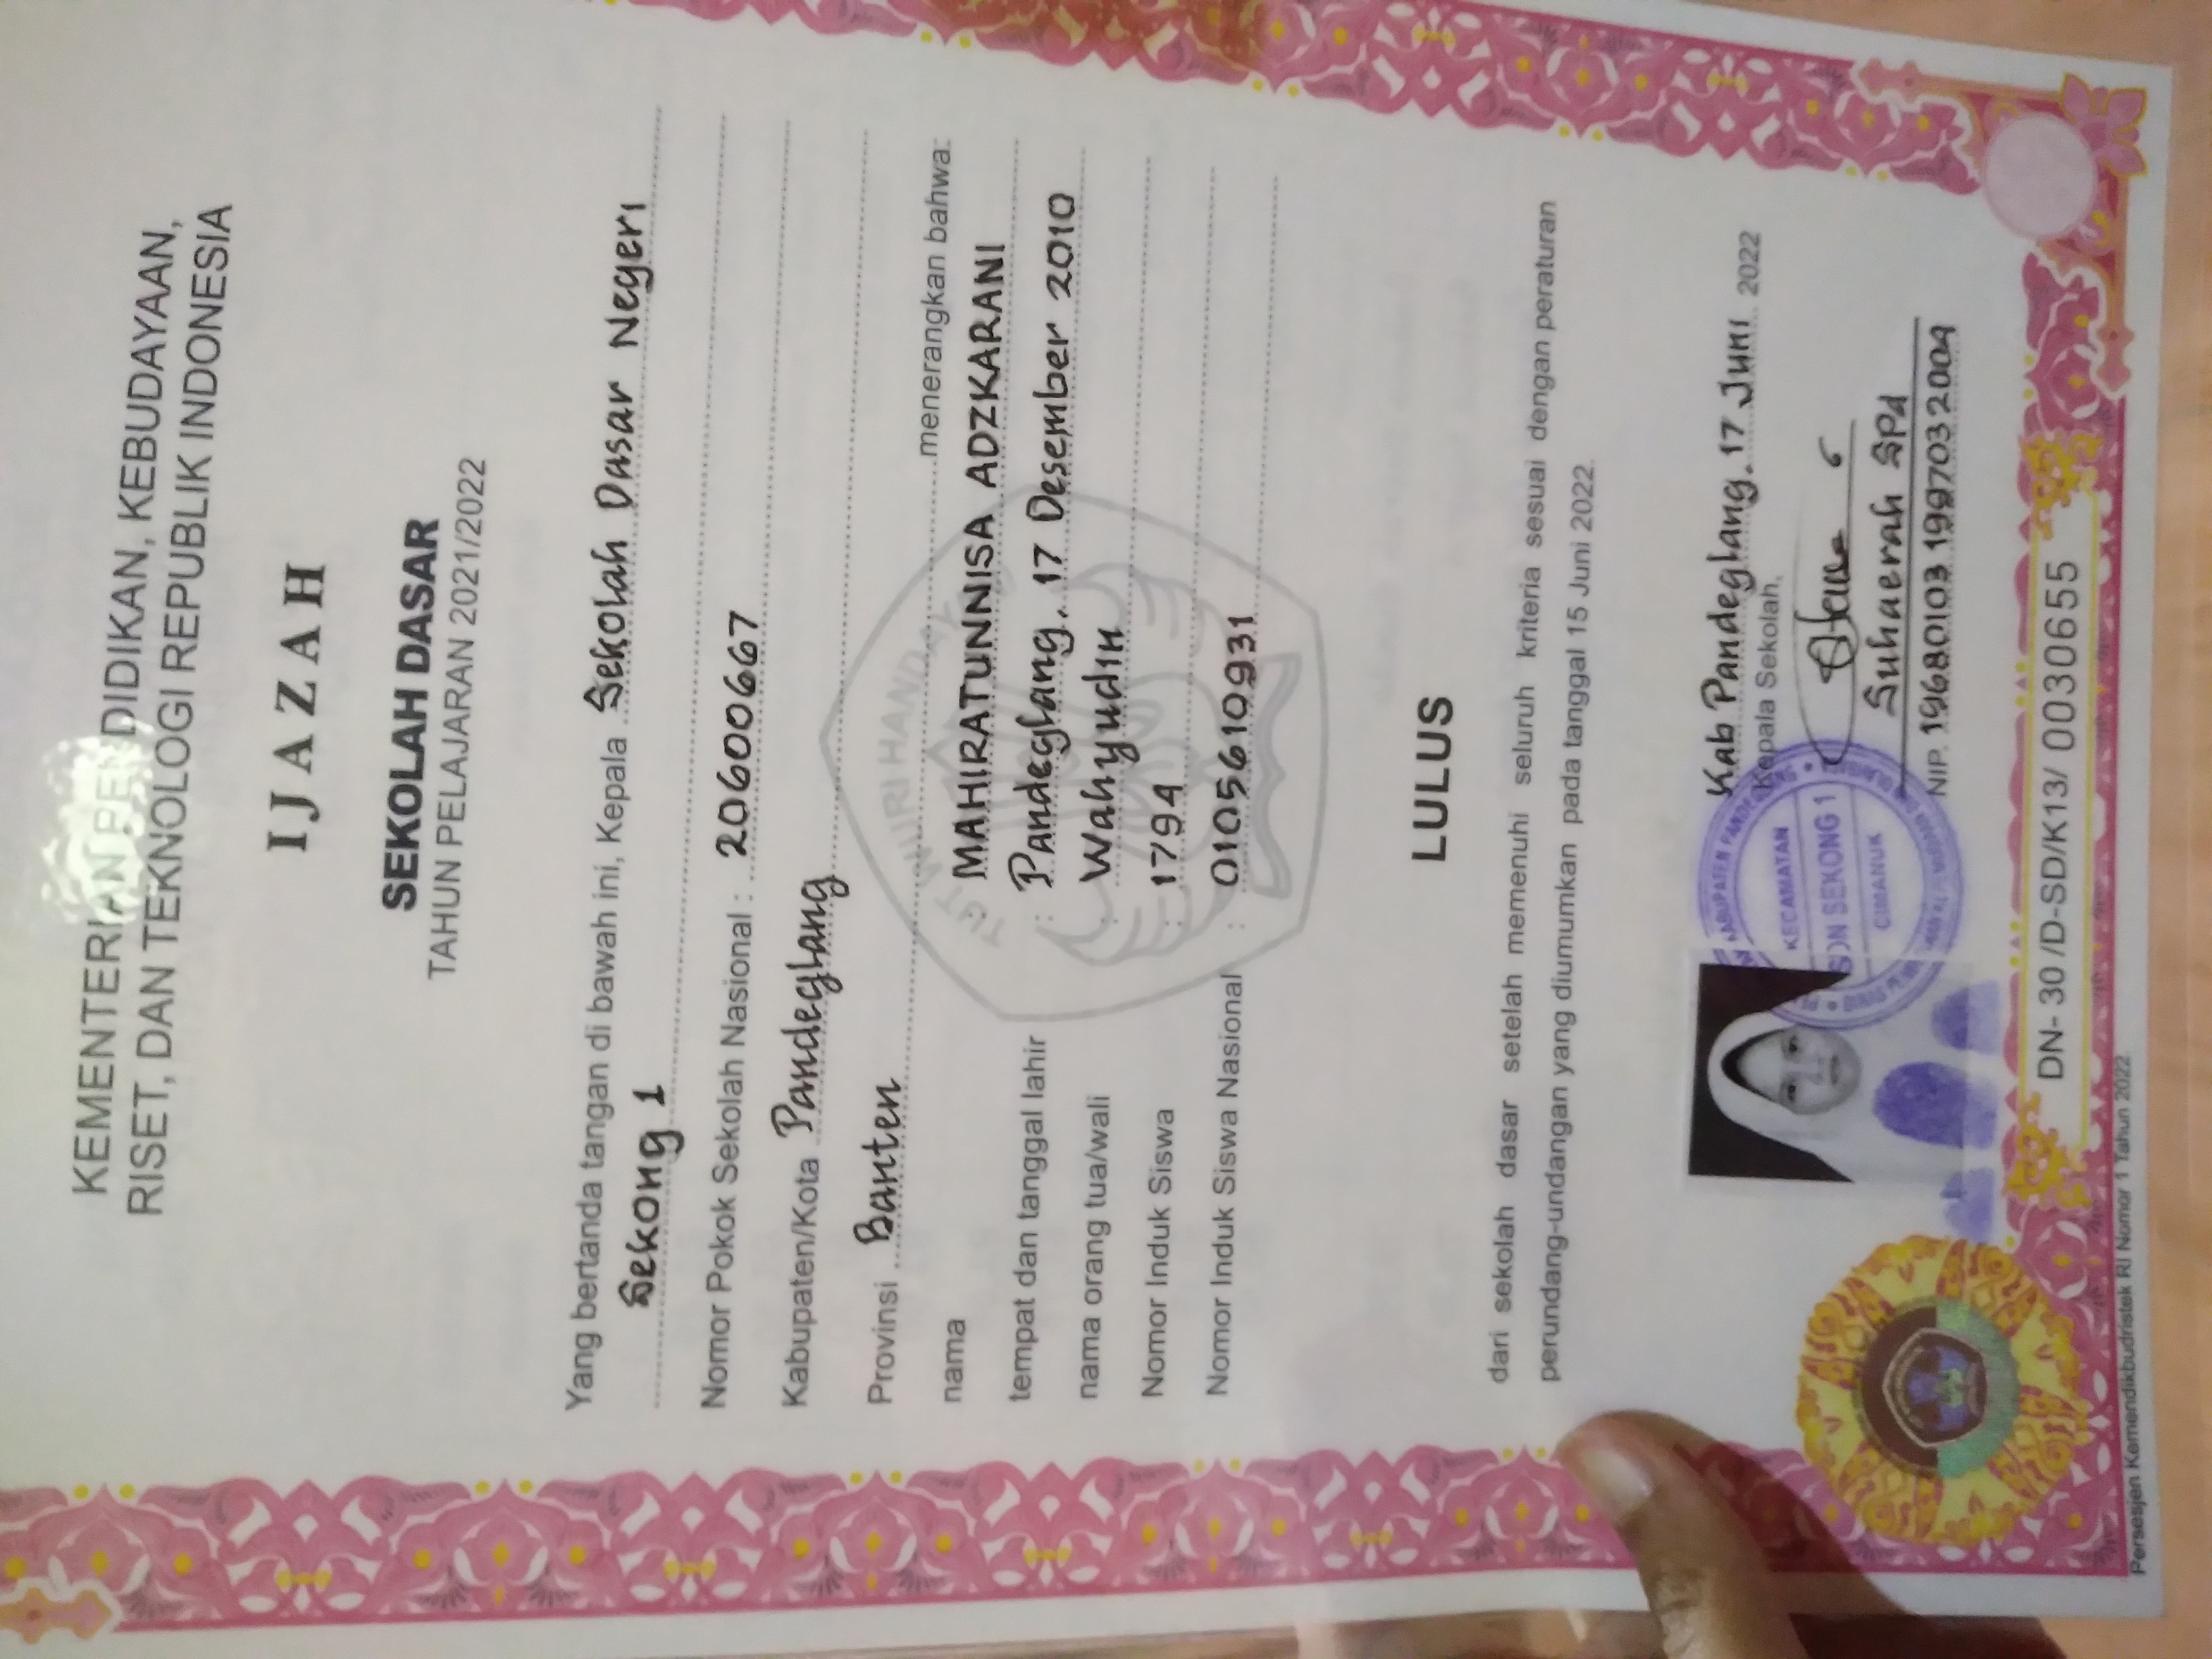 KEMENTERIAN PENDIDIKAN, KEBUDAYAAN,
RISET, DAN TEKNOLOGI REPUBLIK INDONESIA
IJAZAH
SEKOLAH DASAR
TAHUN PELAJARAN 2021/2022
Yang bertanda tangan di bawah ini, Kepala Sekolah Dasar Negeri
Sekong 1
Nomor Pokok Sekolah Nasional : 20600667
Kabupaten/Kota Pandeglang
Provinsi Banten menerangkan bahwa:
TUT WURI HANDAYANI
nama : MAHIRATUNNISA ADZKARANI
tempat dan tanggal lahir : Pandeglang, 17 Desember 2010
nama orang tua/wali : Wahyudin
Nomor Induk Siswa : 1794
Nomor Induk Siswa Nasional : 0105610931
LULUS
dari sekolah dasar setelah memenuhi seluruh kriteria sesuai dengan peraturan
perundang-undangan yang diumumkan pada tanggal 15 Juni 2022.
Kab Pandeglang, 17 Juni 2022
Kepala Sekolah,
KABUPATEN PANDEGLANG
KECAMATAN
SDN SEKONG 1
CIMANUK
Suhaerah SPd
NIP. 19680103 1997032004
DN- 30 /D-SD/K13/ 0030655
Persesjen Kemendikbudristek RI Nomor 1 Tahun 2022